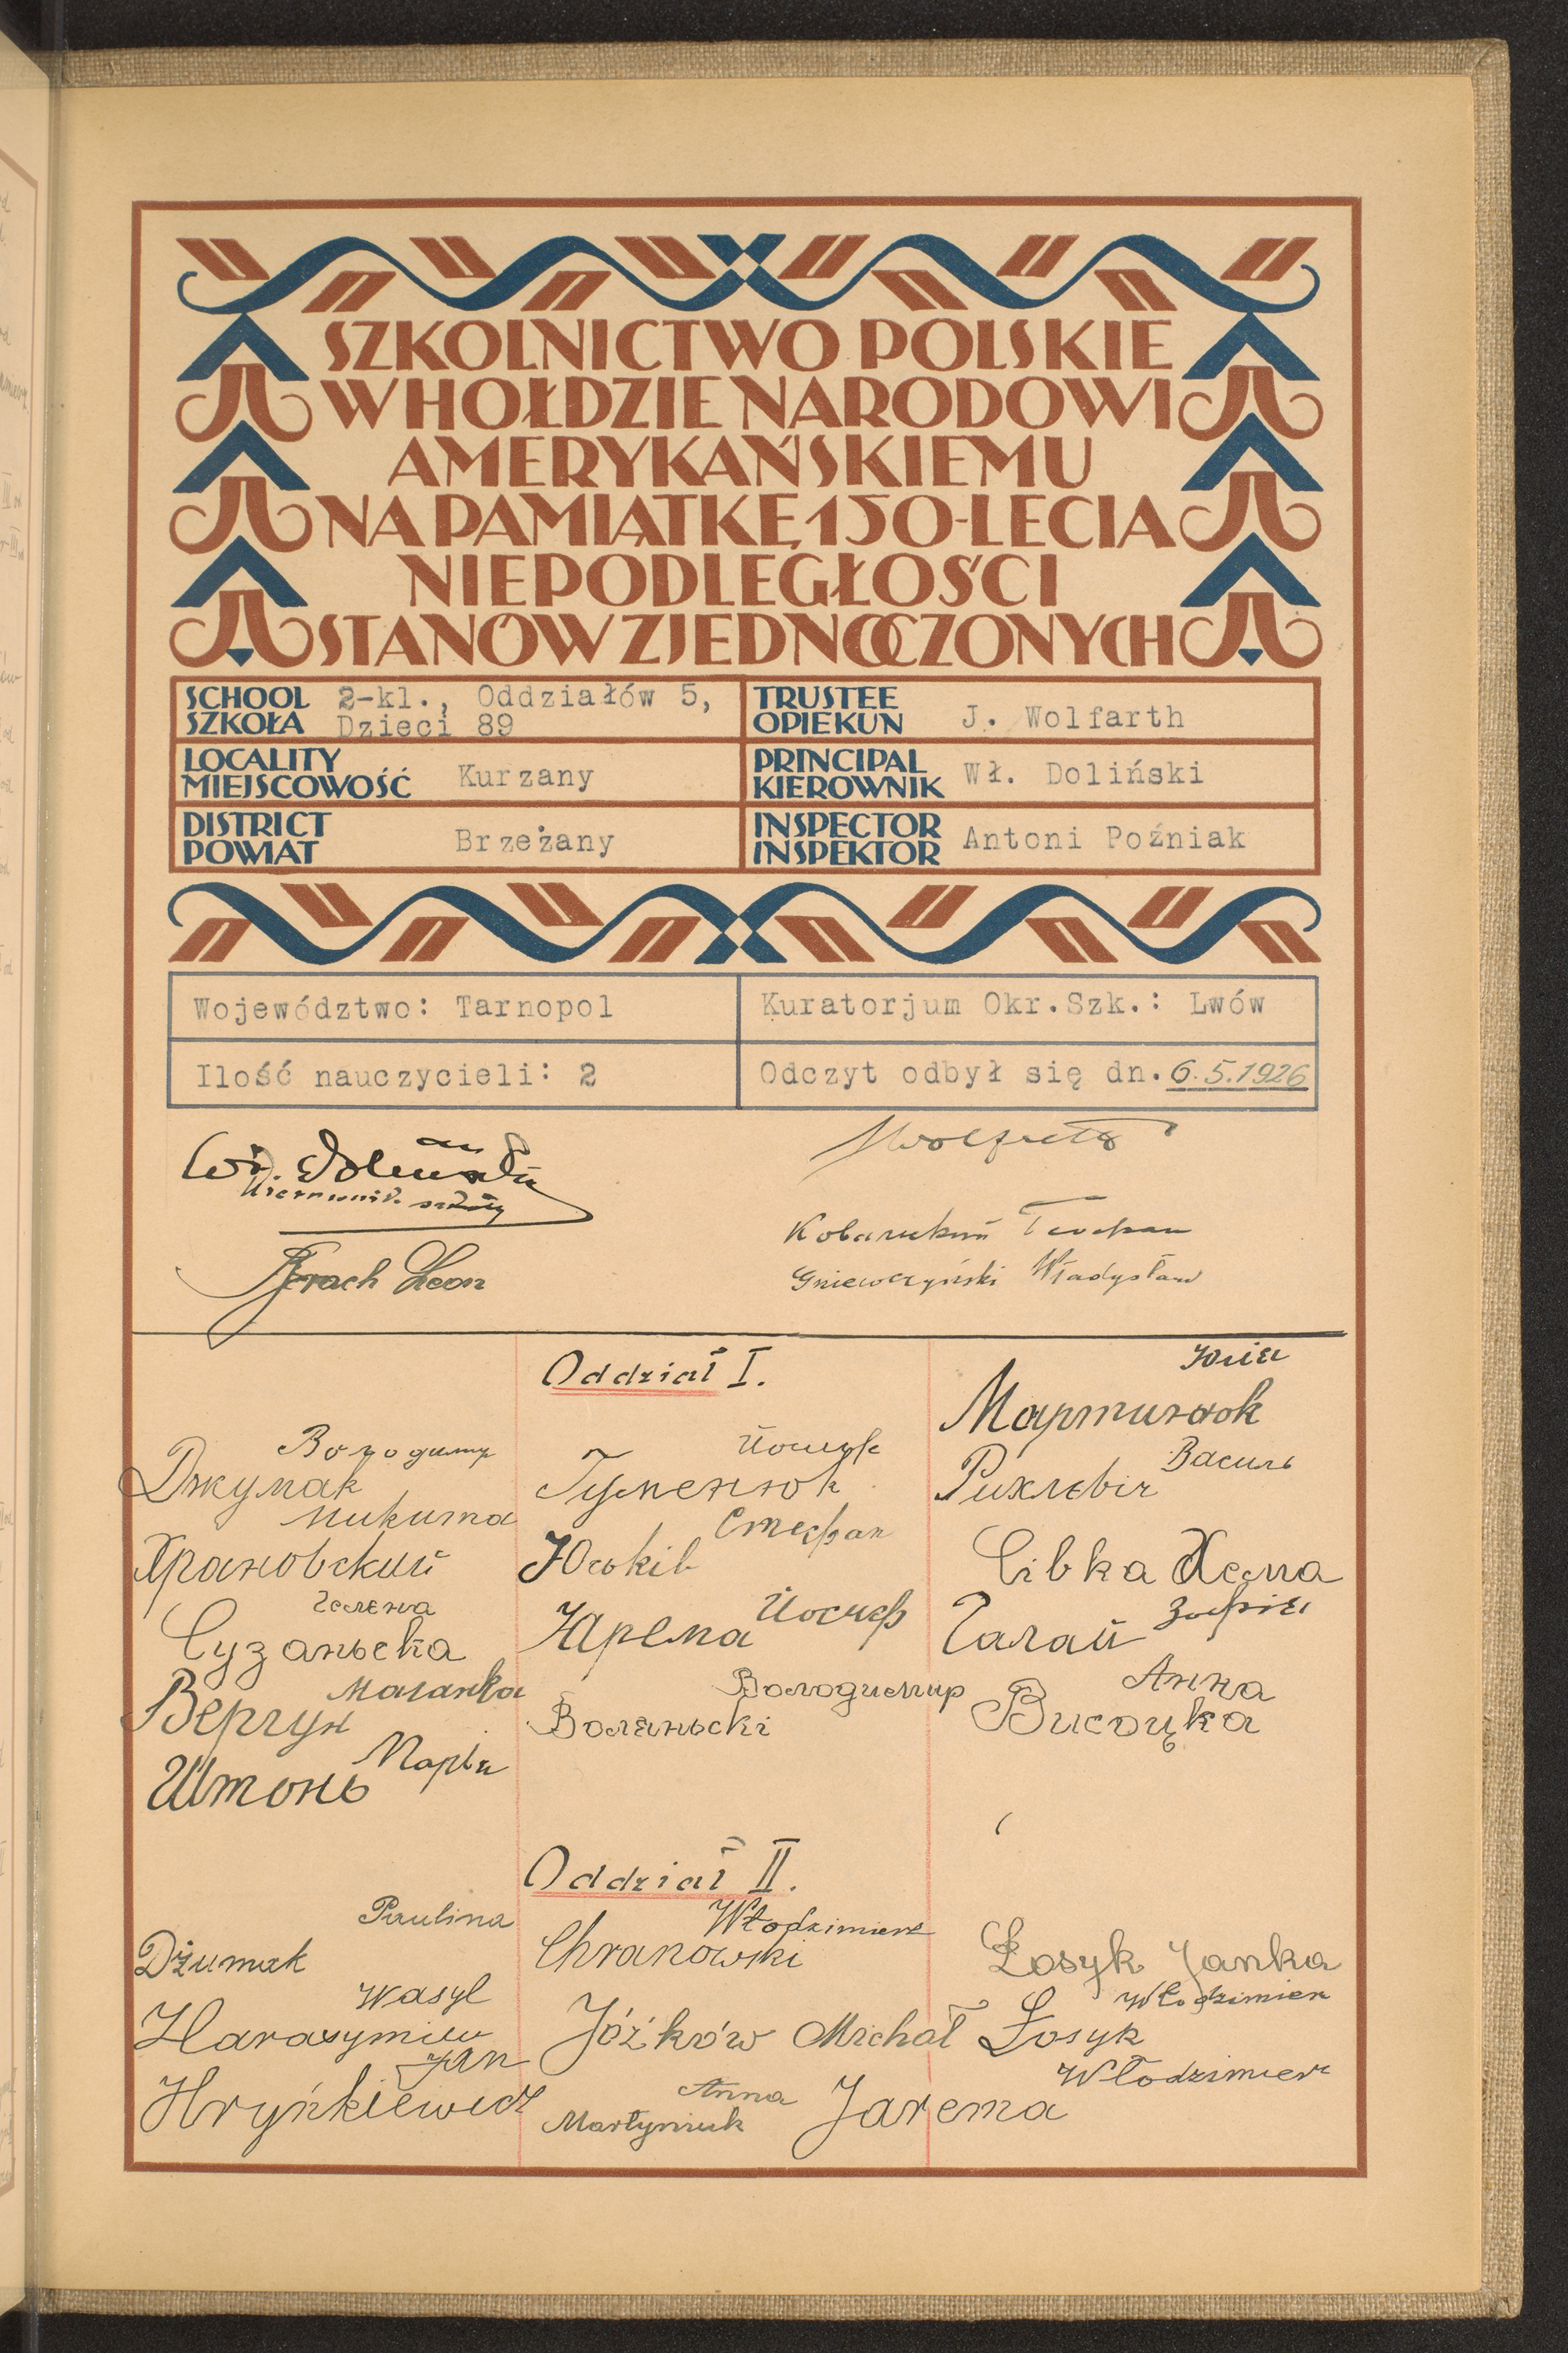 SZKOLNICTWO POLSKIE
W HOŁDZIE NARODOWI
AMERYKAŃSKIEMU
NA PAMIĄTKĘ 150-LECIA
NIEPODLEGŁOŚCI
STANÓW ZJEDNOCZONYCH
SCHOOL
SZKOŁA
2-kl., Oddziałów 5,
Dzieci 89
TRUSTEE
OPIEKUN
J. Wolfarth
LOCALITY
MIEJSCOWOŚĆ
Kurzany
PRINCIPAL
KIEROWNIK
Wł. Doliński
DISTRICT
POWIAT
Brzeżany
INSPECTOR
INSPEKTOR
Antoni Poźniak
Województwo: Tarnopol
Kuratorjum Okr.Szk.: Lwów
Ilość nauczycieli: 2
Odczyt odbył się dn. 6.5.1926
Wł. Doliński
Kierownik szkoły
Leon
Gniewczyński Władysław
Oddział I.
Володимир
Джумак
Микита
Храновский
Гелена
Сузаньска
Маланка
Вергун
Штонь
Йосиф
Гуменюк
Стефан
Юзьків
Йосиф
Ярема
Володимир
Воляньскі
Юлія
Мартинюк
Василь
Рихлєвіч
Сівка Хема
Зофія
Галай
Анна
Висоцка
Oddział II.
Paulina
Dżumak
Wasyl
Harasymiw
Jan
Hryńkiewicz
Włodzimierz
Chranowski
Jóźków Michał
Anna
Martyniuk
Łosyk Janka
Włodzimierz
Łosyk
Włodzimierz
Jarema